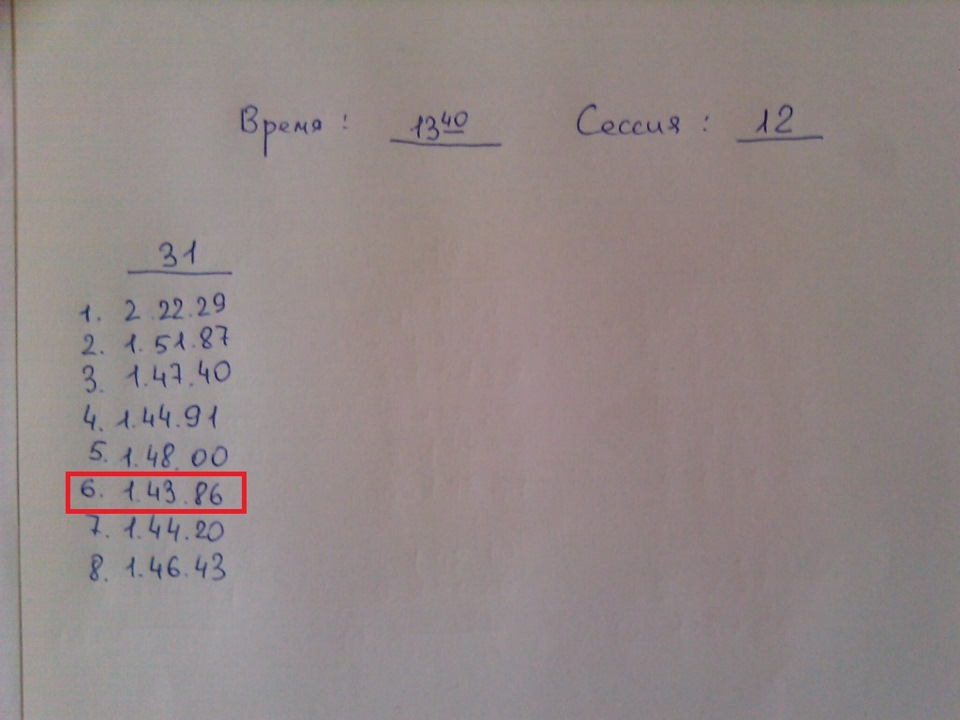 Время : 13⁴⁰ Сессия : 12
31
1. 2.22.29
2. 1.51.87
3. 1.47.40
4. 1.44.91
5. 1.48.00
6. 1.43.86
7. 1.44.20
8. 1.46.43